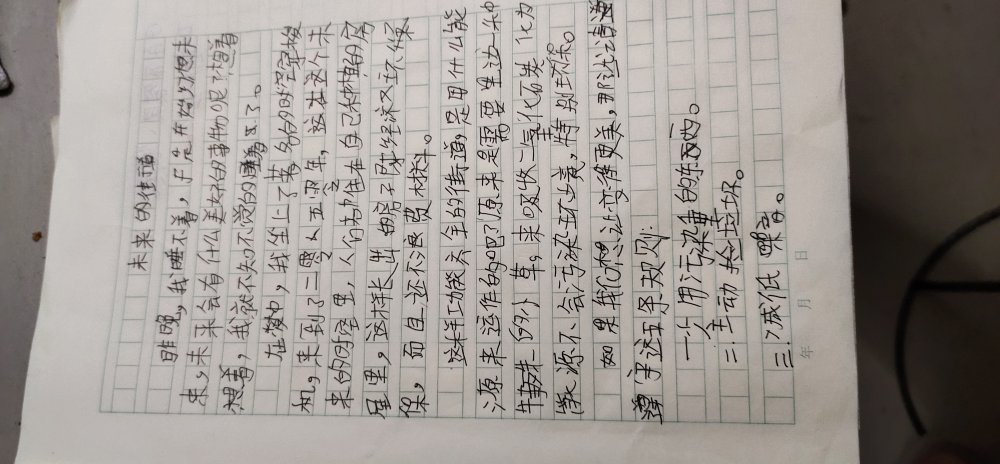 未来的街道
昨晚,我睡不着,于是开始幻想未
来,未来会有什么美好的事物呢?想着
想着,我就不知不觉的睡着了。
在梦中,我坐上了著名的时空穿梭
机,来到了二零五零年,这在这个未
来的时空里,人们都住在自己种植的房
屋里,这样长出的房子既经济又环保
保,而且还不浪费材料。
这样功能齐全的街道,是用什么能
源来运作的吧?原来是需要里边一种
特殊的小草。来吸收二氧化石炭化为
能源不会污染环境,特别环保。
如果我们想让变得更美,那让请遵
遵守这五条规则:
一、少用污染重的东西。
二、主动捡垃圾。
三、减低噪音。
年 月 日